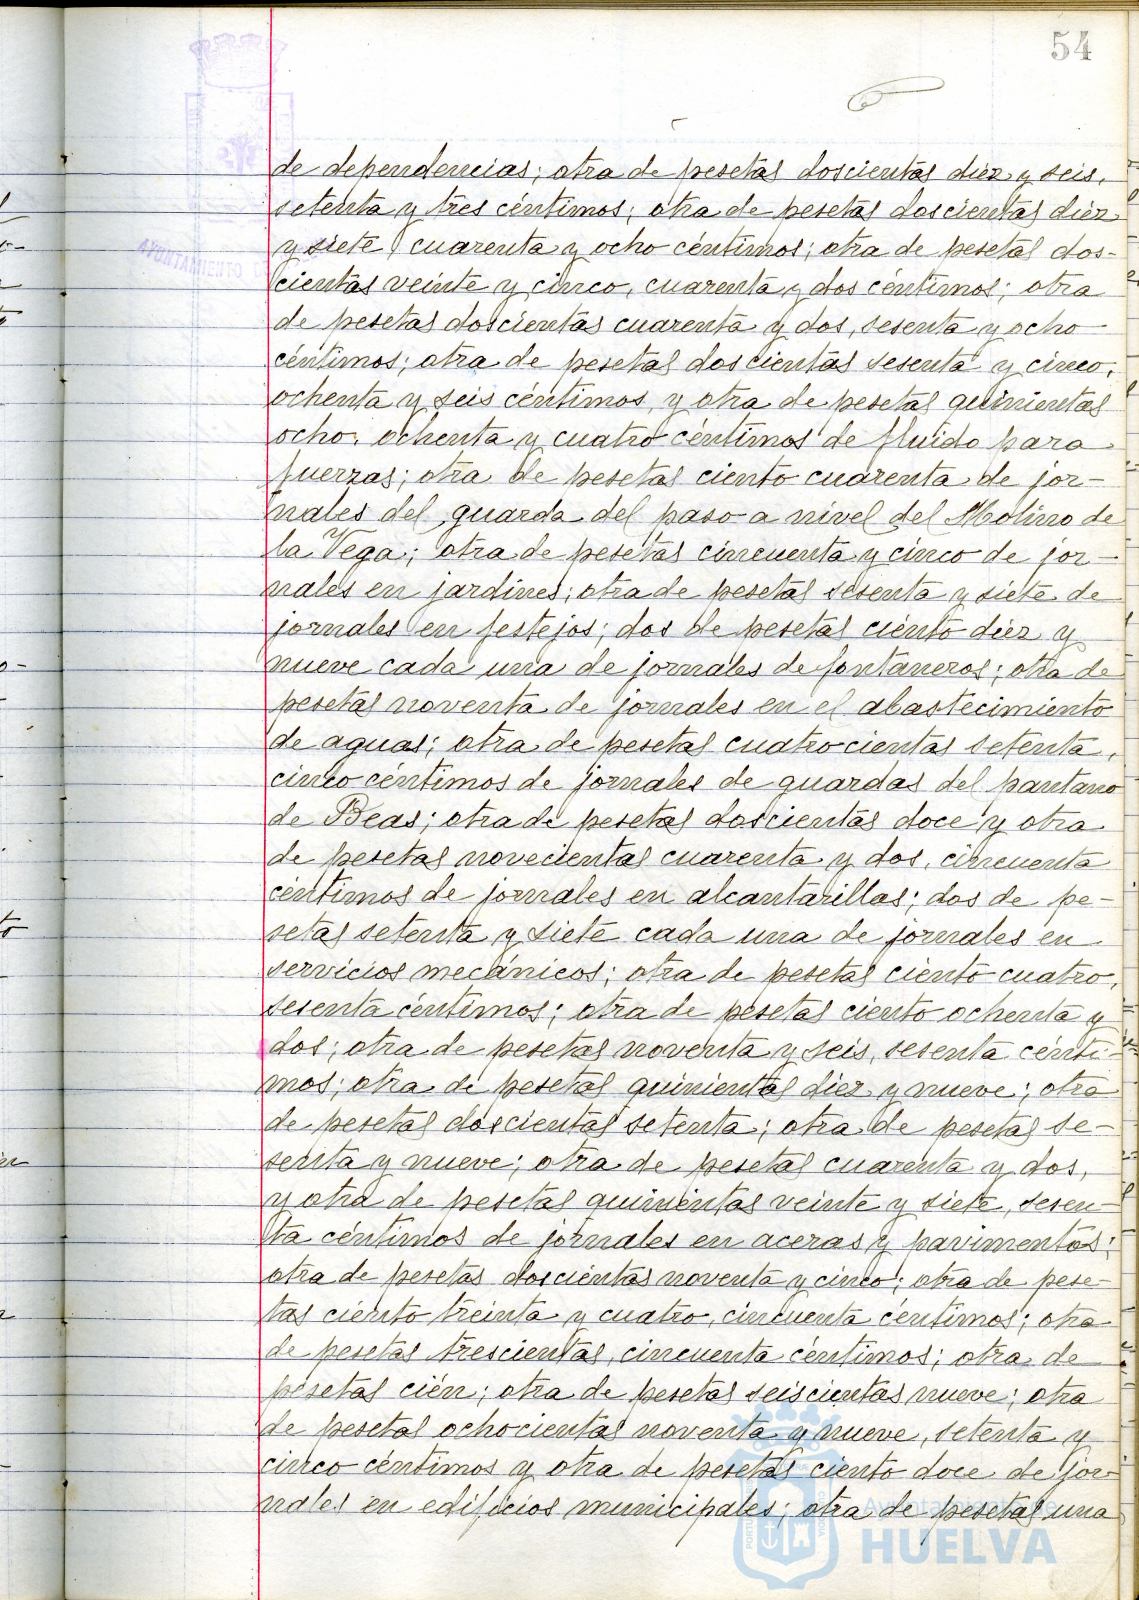 54
AYUNTAMIENTO
de dependencias; otra de pesetas doscientas diez y seis,
setenta y tres céntimos; otra de pesetas doscientas diez
y siete, cuarenta y ocho céntimos; otra de pesetas dos-
cientas veinte y cinco, cuarenta y dos céntimos; otra
de pesetas doscientas cuarenta y dos, sesenta y ocho
céntimos; otra de pesetas doscientas sesenta y cinco,
ochenta y seis céntimos, y otra de pesetas quinientas
ocho, ochenta y cuatro céntimos de fluido para
fuerzas; otra de pesetas ciento cuarenta de jor-
nales del guarda del paso a nivel del Molino de
la Vega; otra de pesetas cincuenta y cinco de jor-
nales en jardines; otra de pesetas sesenta y siete de
jornales en festejos; dos de pesetas ciento diez y
nueve cada una de jornales de fontaneros; otra de
pesetas noventa de jornales en el abastecimiento
de aguas; otra de pesetas cuatrocientas setenta,
cinco céntimos de jornales de guardas del pantano
de Beas; otra de pesetas doscientas doce y otra
de pesetas novecientas cuarenta y dos, cincuenta
céntimos de jornales en alcantarillas; dos de pe-
setas setenta y siete cada una de jornales en
servicios mecánicos; otra de pesetas ciento cuatro,
sesenta céntimos; otra de pesetas ciento ochenta y
dos; otra de pesetas noventa y seis, sesenta cénti-
mos; otra de pesetas quinientas diez y nueve; otra
de pesetas doscientas setenta; otra de pesetas se-
senta y nueve; otra de pesetas cuarenta y dos,
y otra de pesetas quinientas veinte y siete, sesen-
ta céntimos de jornales en aceras y pavimentos;
otra de pesetas doscientas noventa y cinco; otra de pese-
tas ciento treinta y cuatro, cincuenta céntimos; otra
de pesetas trescientas, cincuenta céntimos; otra de
pesetas cién; otra de pesetas seiscientas nueve; otra
de pesetas ochocientas noventa y nueve, setenta y
cinco céntimos y otra de pesetas ciento doce de jor-
nales en edificios municipales; otra de pesetas una
Ayuntamiento de
HUELVA